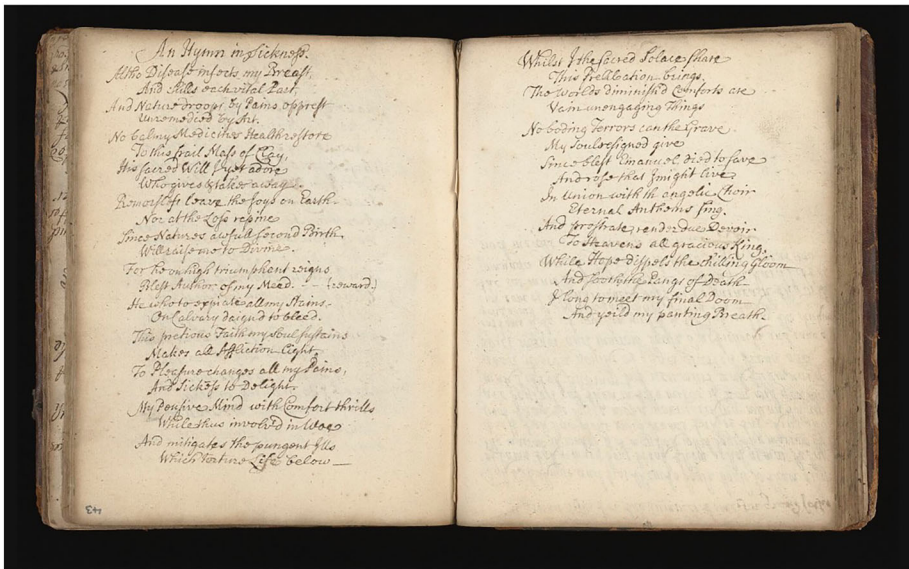 An Hymn in Sickness.
Altho Disease infects my Breast,
And chills each vital Part,
And Nature droops by Pains opprest
Unremedied by Art.
No balmy Medicines Health restore
To this frail Mass of Clay,
His sacred Will I yet adore
Who gives & takes away.
Remorsless leave the Joys on Earth
Nor at the Loss repine
Since Natures awfull second Birth
Will raise me to Divine.
For he on high triumphant reigns
Blest Author of my Meed. - (reward)
He who to expiate all my Stains
On Calvary daign'd to bleed.
This pretious Faith my Soul sustains
Makes all Affliction Light,
To Pleasure changes all my Pains,
And Sickness to Delight,
My Pensive Mind with Comfort thrills
While thus involv'd in Woe
And mitigates the pungent Ills
Which torture Life below—
43
Whilst I the sacred Solace share
This Prelibation brings,
The Worlds diminish'd Comforts are
Vain unengaging Things
No boding Terrors can the Grave
My Soul resigned give
Since blest Emanuel died to save
And rose that I might live,
In Union with th angelic Choir
Eternal Anthems sing.
And prostrate, render due Devoir
To Heavens all gracious King.
While Hope dispels the chilling Gloom
And sooths the Pangs of Death
I long to meet my final Doom
And yeild my panting Breath